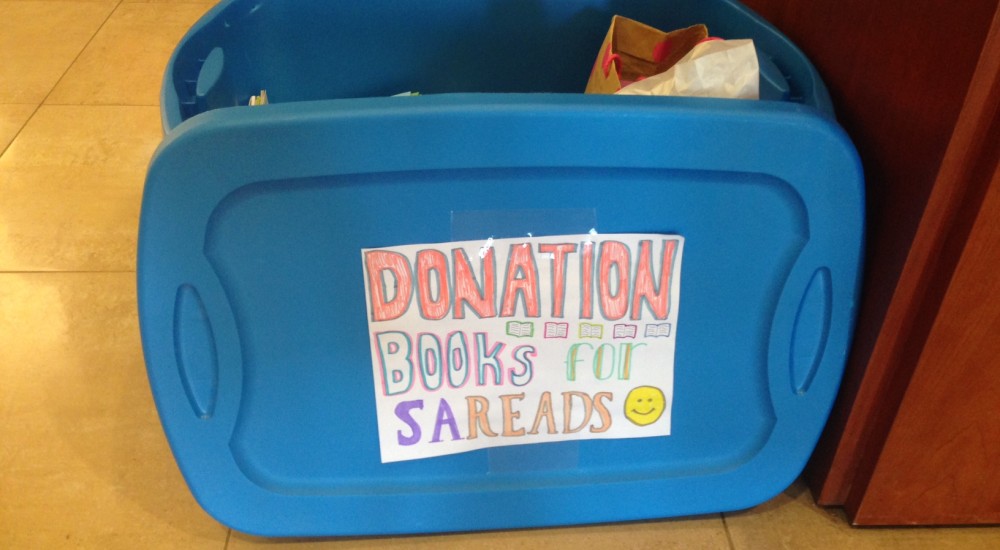 DONATION
BOOKS FOR
SAREADS